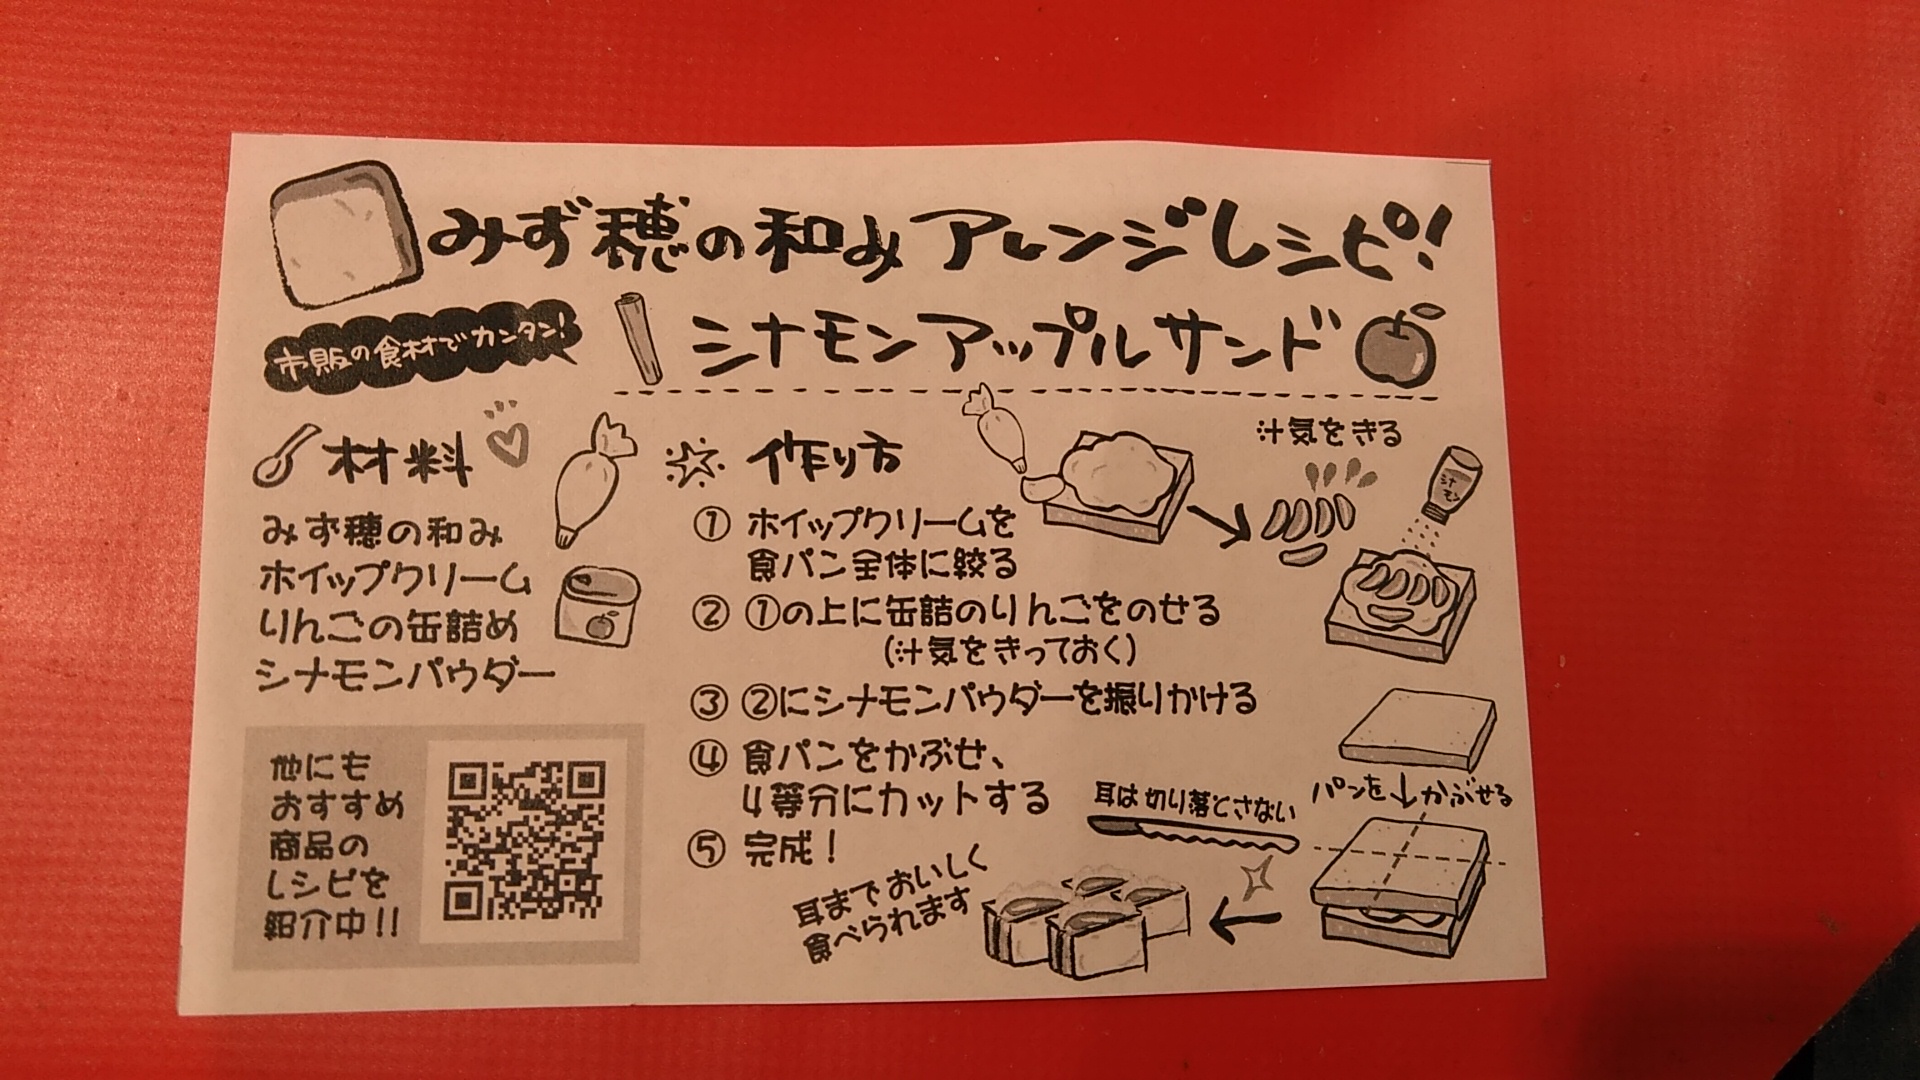 みず穂の和みアレンジレシピ!
市販の食材でカンタン!
シナモンアップルサンド
材料
みず穂の和み
ホイップクリーム
りんごの缶詰め
シナモンパウダー
他にも
おすすめ
商品の
レシピを
紹介中!!
作り方
① ホイップクリームを
食パン全体に絞る
② ①の上に缶詰のりんごをのせる
(汁気をきっておく)
③ ②にシナモンパウダーを振りかける
④ 食パンをかぶせ、
4等分にカットする
⑤ 完成!
耳までおいしく
食べられます
汁気をきる
シナモン
パンを↓かぶせる
耳は切り落とさない